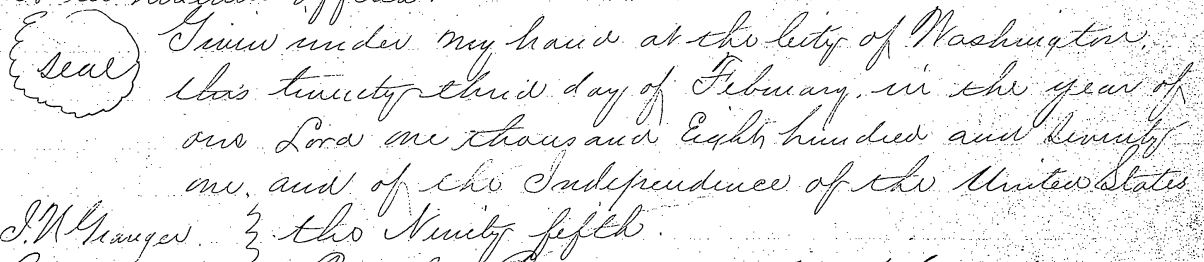 Given under my hand at the City of Washington.
seal
this twenty third day of February, in the year of
our Lord one thousand Eight hundred and Seventy
one, and of the Independence of the United States
J. N Granger } the Ninity fifth.